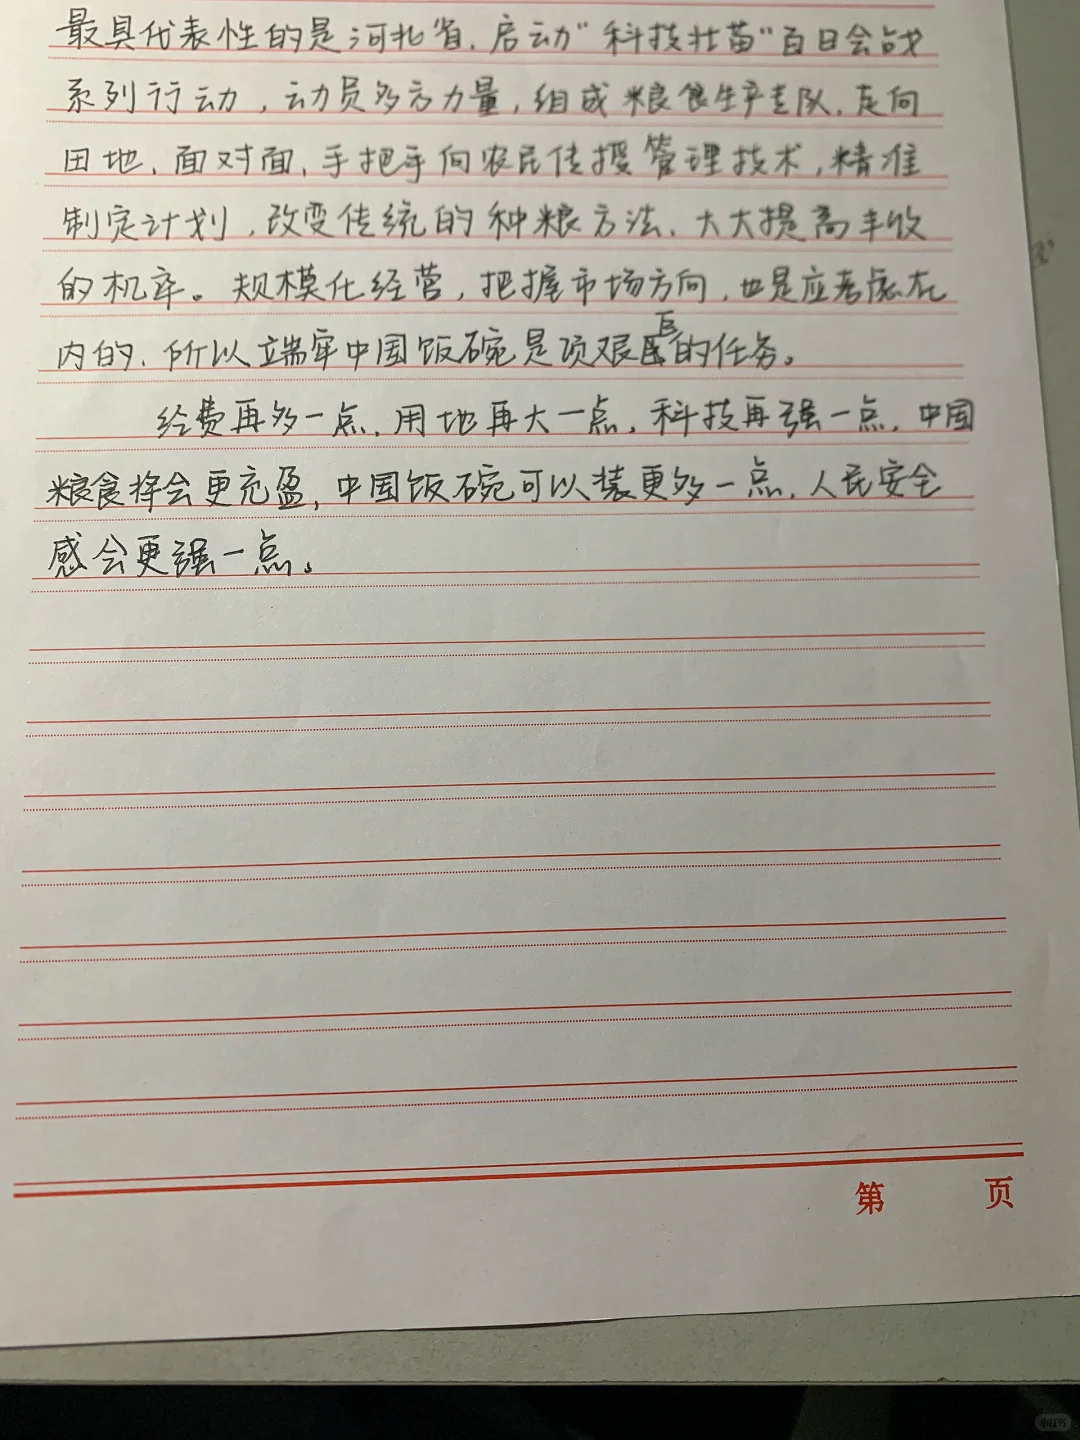 最具代表性的是河北省，启动“科技壮苗”百日会战
系列行动，动员多方力量，组成粮食生产专队，走向
田地，面对面，手把手向农民传授管理技术，精准
制定计划，改变传统的种粮方法，大大提高丰收
的机率。规模化经营，把握市场方向，也是应考虑在
内的，所以端牢中国饭碗是项艰巨的任务。
经费再多一点，用地再大一点，科技再强一点，中国
粮食将会更充盈，中国饭碗可以装更多一点，人民安全
感会更强一点。
第 页
小红书